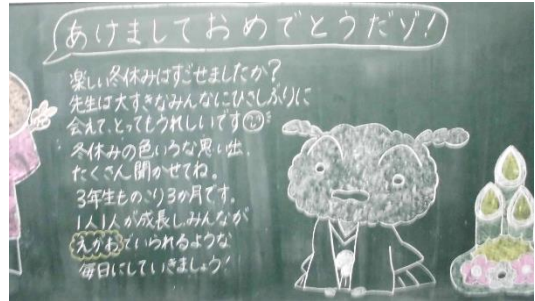 あけましておめでとうだゾ!
楽しい冬休みはすごせましたか?
先生は大すきなみんなにひさしぶりに
会えて、とってもうれしいです
冬休みの色いろな思い出、
たくさん聞かせてね。
3年生ものこり3か月です。
1人1人が成長しみんなが
えがおでいられるような
毎日にしていきましょう!